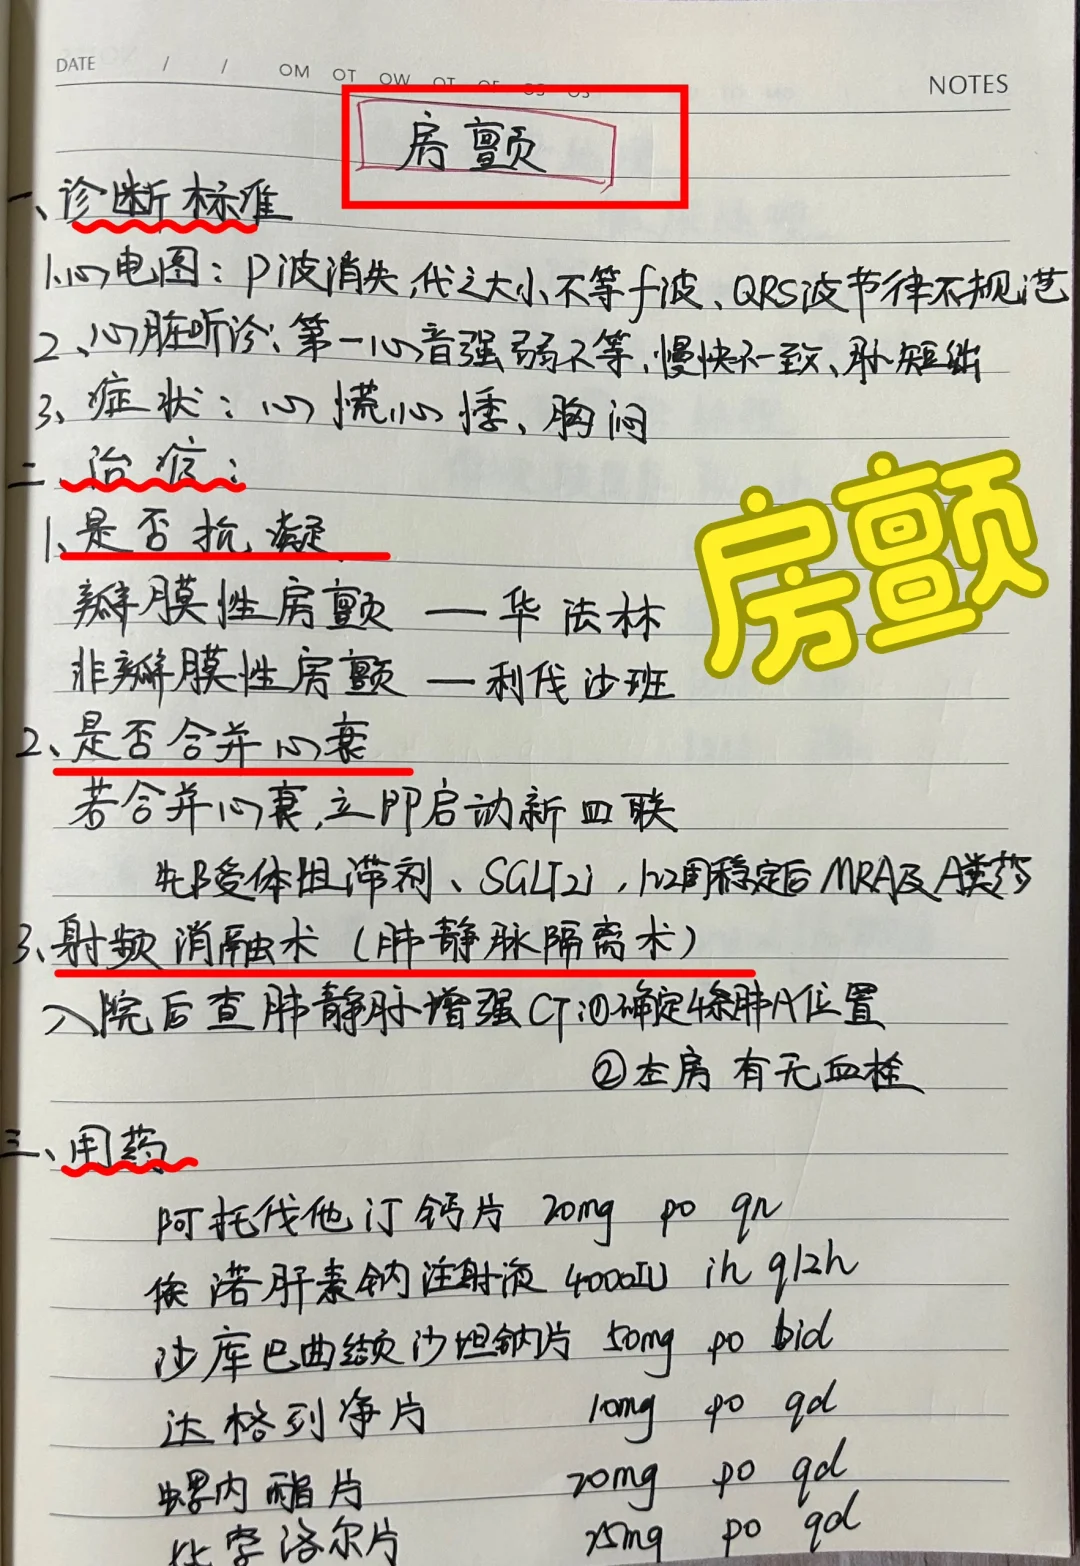 DATE / / OM OT OW OT
NOTES
房颤
一、诊断标准
1.心电图：P波消失,代之大小不等f波、QRS波节律不规范
2、心脏听诊：第一心音强弱不等,慢快不一致、脉短绌
3、症状：心慌,心悸、胸闷
二、治疗：
房颤
1、是否抗凝
瓣膜性房颤 — 华法林
非瓣膜性房颤 — 利伐沙班
2、是否合并心衰
若合并心衰,立即启动新四联
先β受体阻滞剂、SGLT2i，1~2周稳定后MRA及A类药
3、射频消融术（肺静脉隔离术）
入院后查肺静脉增强CT：①确定4条肺A位置
②左房有无血栓
三、用药
阿托伐他汀钙片 20mg po qn
依诺肝素钠注射液 4000IU ih q12h
沙库巴曲缬沙坦钠片 50mg po bid
达格列净片 10mg po qd
螺内酯片 20mg po qd
洛尔片 25mg po qd